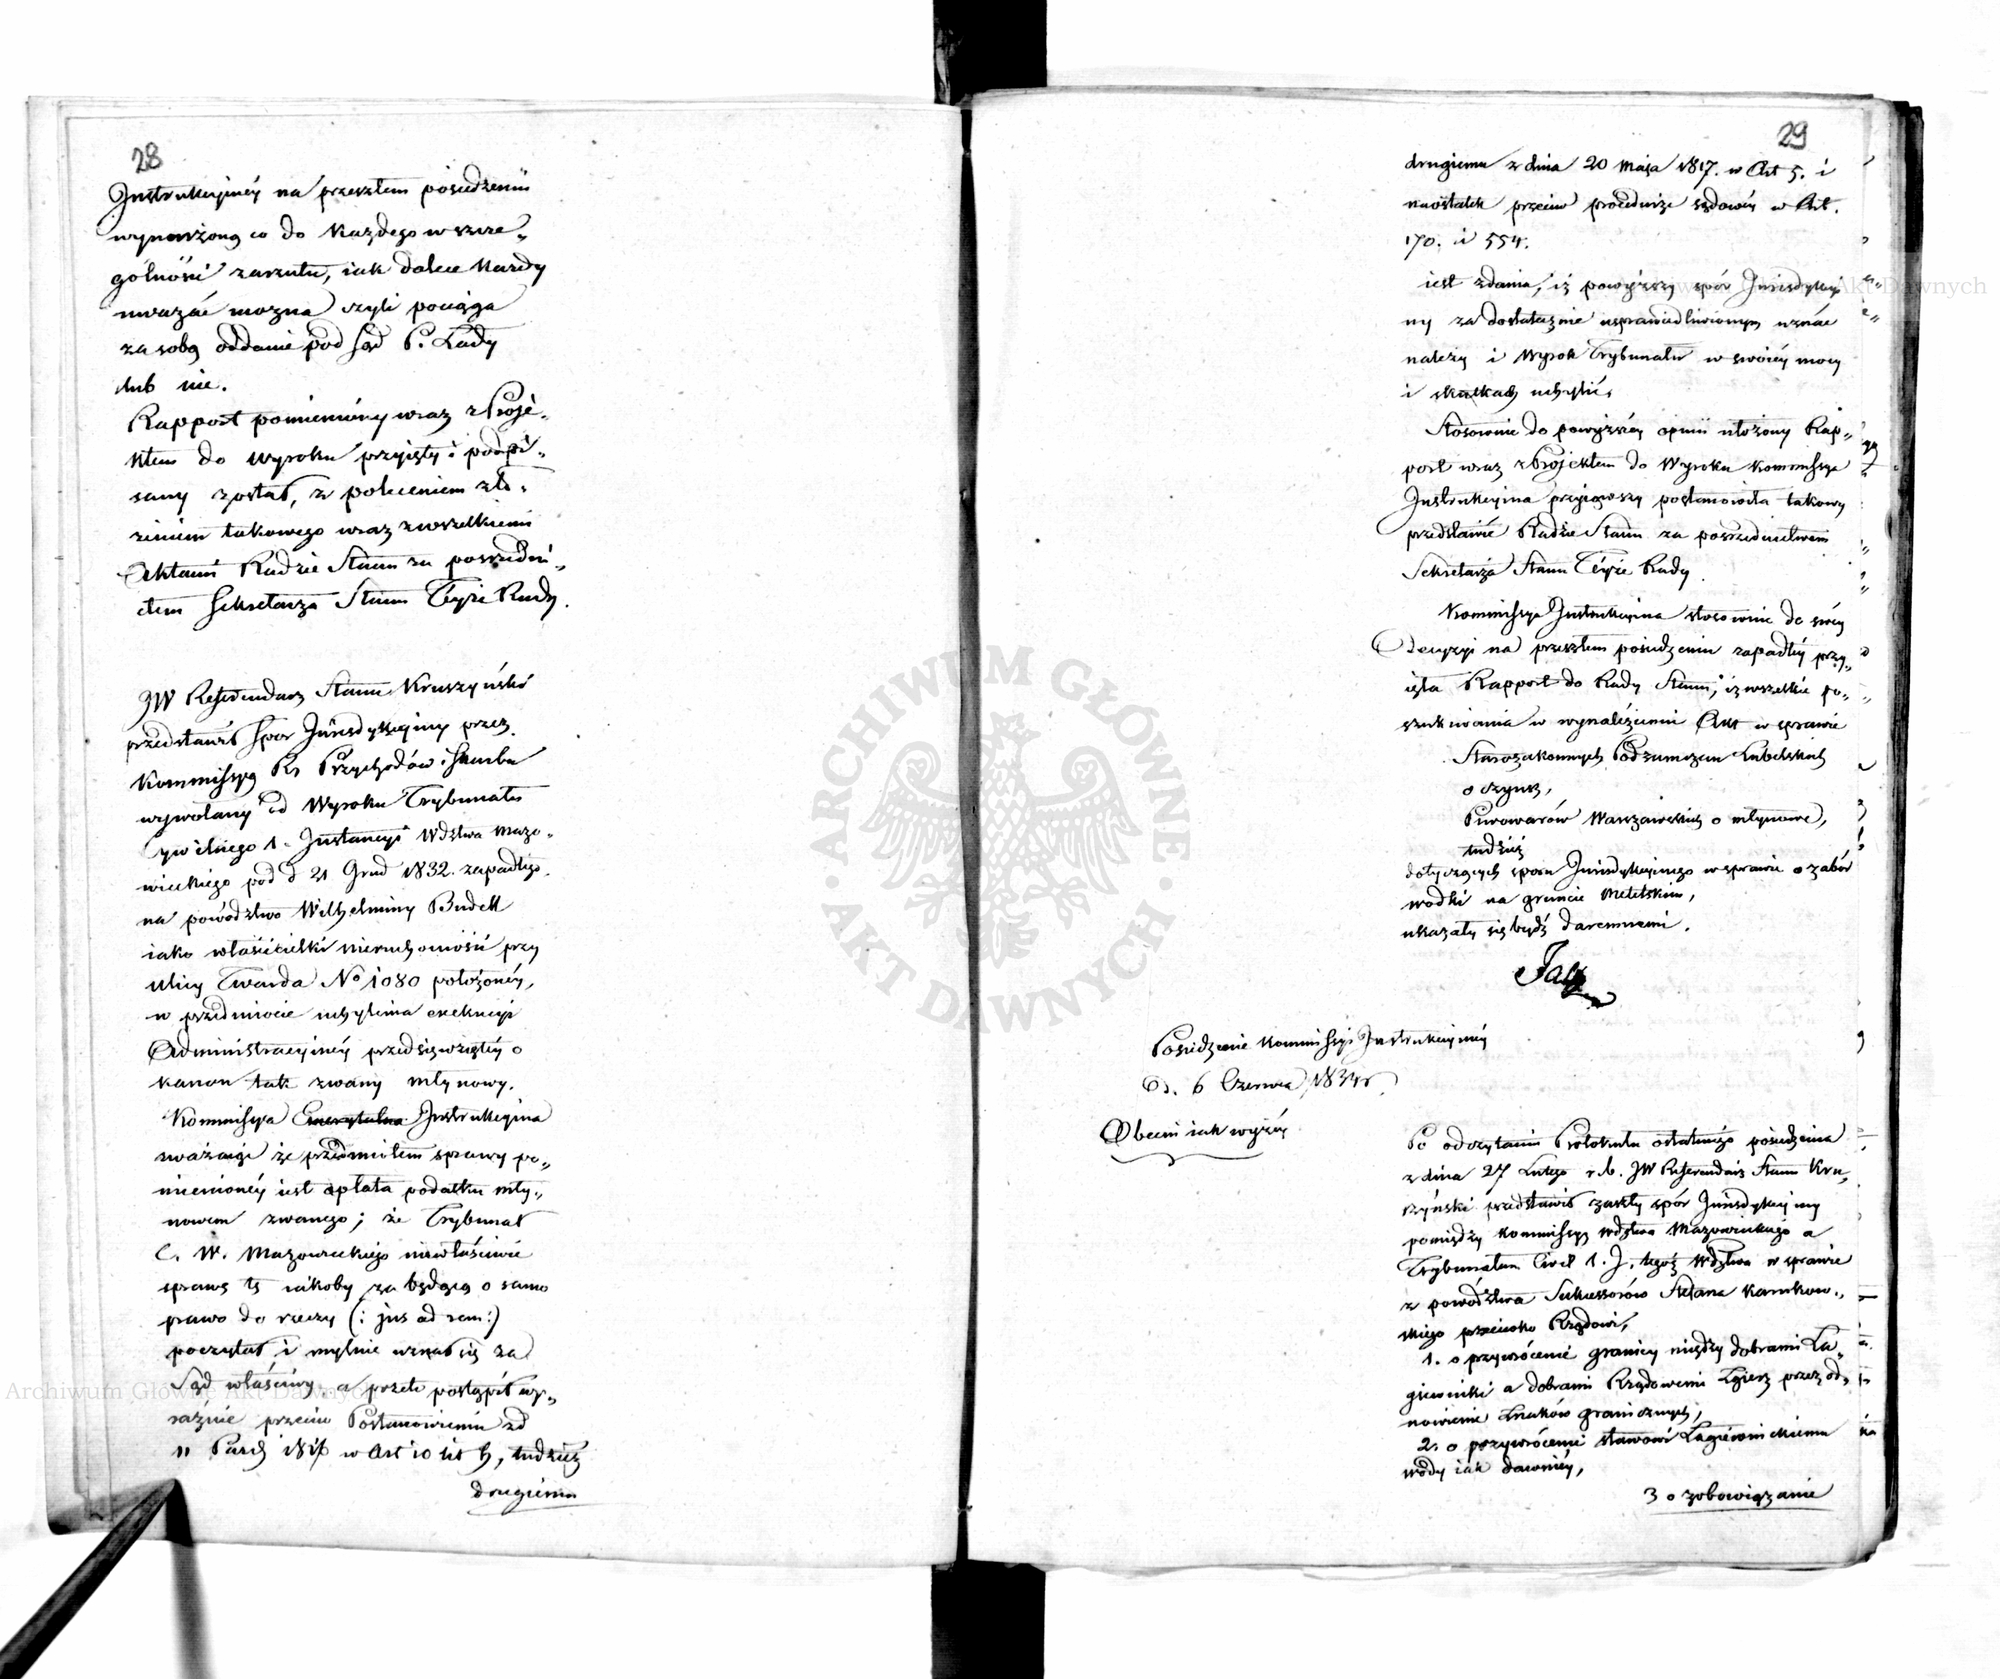 28
Instrukcyiney na przeszłem posiedzeniu
wynurzoną co do każdego w szcze„
gólności zarzutu, iak dalece każdy
uważać można czyli pociąga
za sobą oddanie pod Sąd P. Rady
lub nie.
Rapport pomieniony wraz z Proje„
ktem do wyroku przyięty i podpi„
sany został, z poleceniem zło„
żenia takowego wraz z wszelkiemi
Aktami Radzie Stanu za pośredni„
ctem Sekretarza Stanu Teyże Rady.
JW Referendarz Stanu Kruszyński
przedstawił Spór Jurisdykcyiny przez
Kommissyą R. Przychodów i Skarbu
wywołany od Wyroku Trybunału
Cywilnego 1. Instancyi Wdztwa Mazo„
wieckiego pod d 21 Grud 1832. zapadłego
na powództwo Wilhelminy Budell
iako właścicielki nieruchomości przy
ulicy Twarda No 1080 położoney,
w przedmiocie uchylenia exekucyi
Administracyiney przedsięwziętey o
kanon tak zwany młynowy.
Kommissya Emerytalna Instrukcyina
uważaiąc że przedmiotem sprawy po„
mienioney iest opłata podatku mły„
nowem zwanego; że Trybunał
C. W. Mazowieckiego niewłaściwie
sprawę tę iakoby za będącą o samo
prawo do rzeczy (: jus ad rem :)
poczytał i mylnie uznał się za
Sąd właściwy, a przeto postąpił wy„
raźnie przeciw Postanowieniu zd
11 Paźd 1816 w Art 10 lit h, tudzież
drugiemu
29
drugiemu z dnia 20 Maja 1817. w Art 5. i
naostatek przeciw procedurze sądowéy w Art.
170. i 554.
iest zdania, iż powyższy spór Jurisdykcyi
ny za dostatecznie usprawiedliwionym uznać
należy i Wyrok Trybunału w swoiéy mocy
i skutkach uchylić.
Stosownie do powyższéy opinii ułożony Rap„
port wraz z Projektem do Wyroku Kommissya
Instrukcyina przyiąwszy postanowiła takowy
przedstawić Radzie Stanu za pośrednictwem
Sekretarza Stanu Téyże Rady.
Kommissya Instrukcyina stosownie do swéy
Decyzyi na przeszłem posiedzeniu zapadłéy przy„
ięła Rapport do Rady Stanu, iż wszelkie po„
szukiwania w wynalezieniu Akt w sprawie
Starozakonnych Podzamczan Lubelskich
o czynsz,
Piwowarów Warszawskich o młynowe,
tudzież
dotyczących sporu Jurisdykcyinego w sprawie o zabór
wódki na gruncie
ukazały się bydź daremnemi.
Posiedzenie Kommissyi Instrukcyinéy
d. 6 Czerwca 1834 r.
Obecni iak wyżéy
Po odczytaniu Protokułu ostatniego posiedzenia
z dnia 27 Lutego r. b. JW Referendarz Stanu Kru„
szyński przedstawił zaszły spór Jurisdykcyiny
pomiędzy Kommissyą Wdztwa Mazowieckiego a
Trybunałem Cwil 1. J. tegoż Wdztwa w sprawie
z powództwa Sukcessorów Stefana Karnkow„
skiego przeciwko Rządowi,
1. o przywrócenie granicy między dobrami Ła„
giewniki a dobrami Rządowemi Zgierz przez od„
nowienie znaków granicznych,
2. o przywrócenie stawowi Łagiewnickiemu
wody iak dawniéy,
3 o zobowiązanie
ARCHIWUM GŁÓWNE
AKT DAWNYCH
Archiwum Główne Akt Dawnych
Archiwum Główne Akt Dawnych